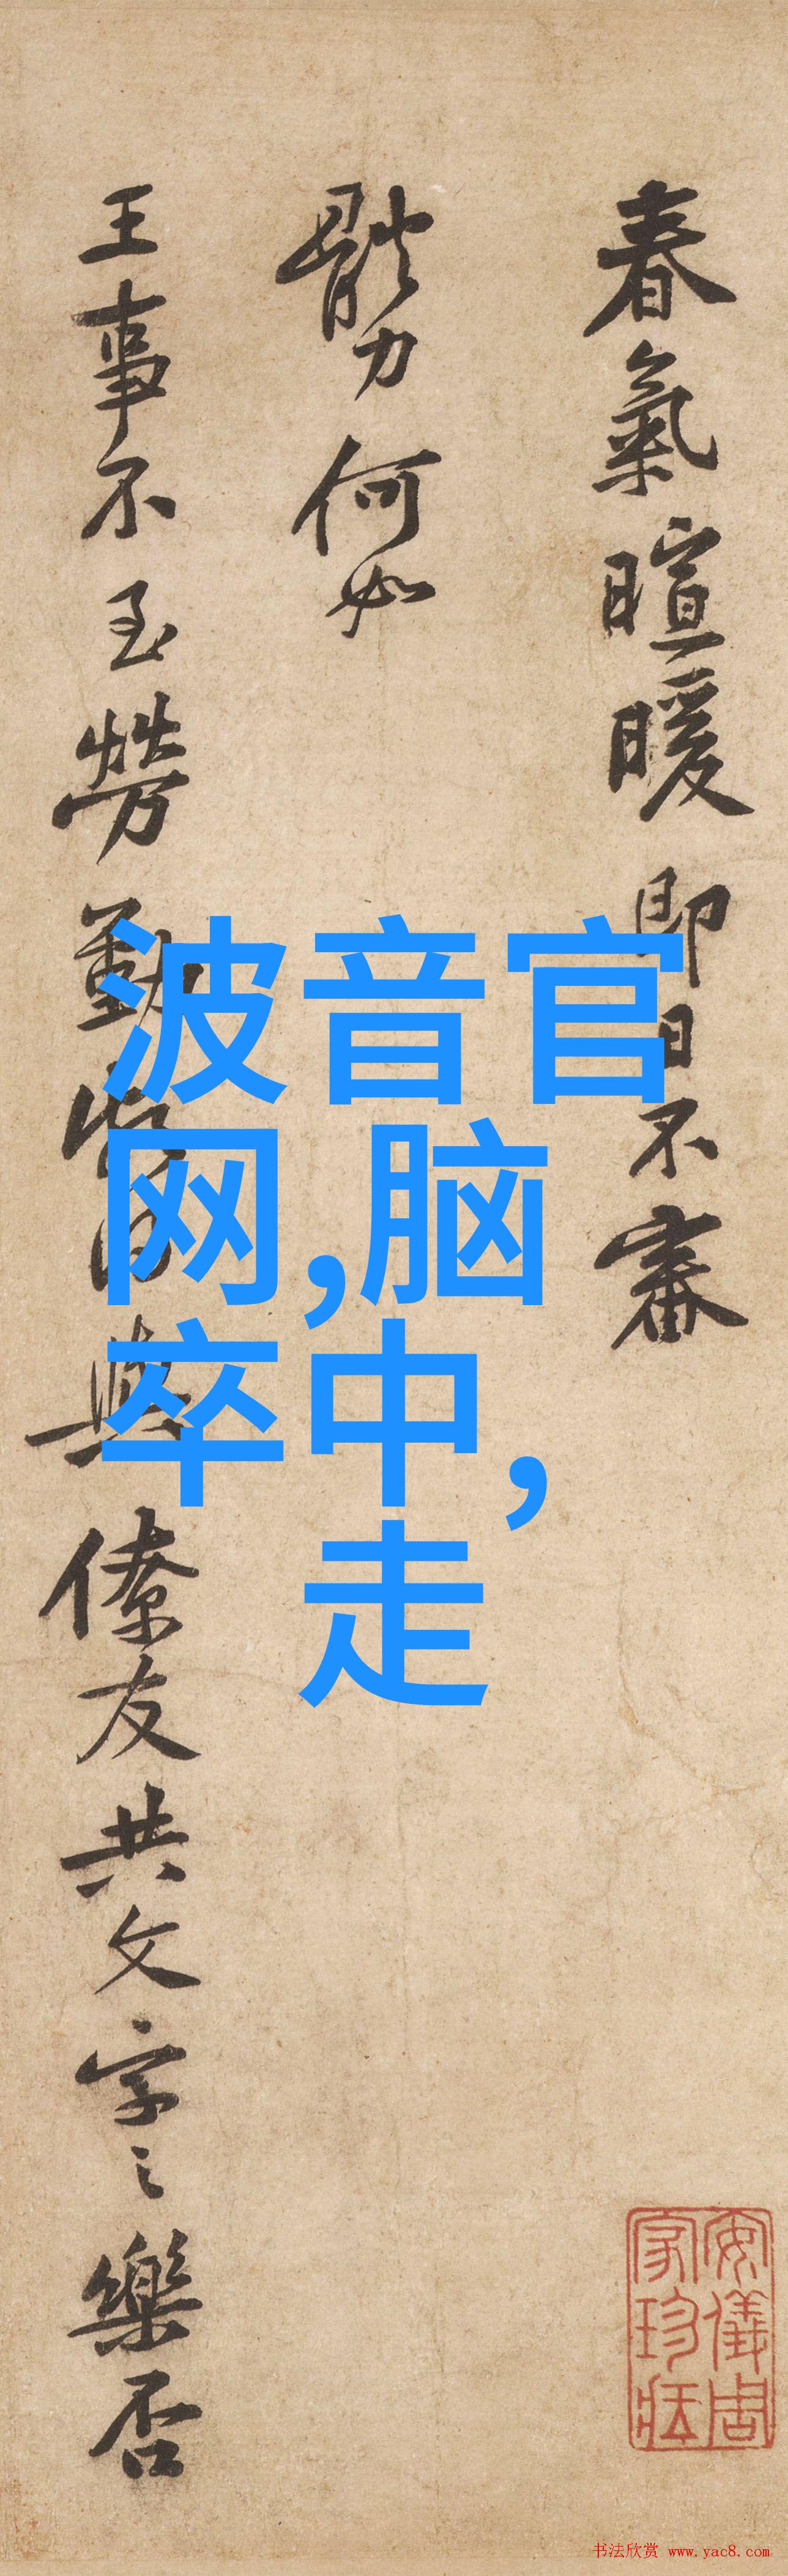 春氣暄暖即日不審
體力何如
王事不至勞勤當日與僚友共文字之樂否
波音官
网,脑
卒中,
走
安儀周家珍藏
书法欣赏 www.yac8.com